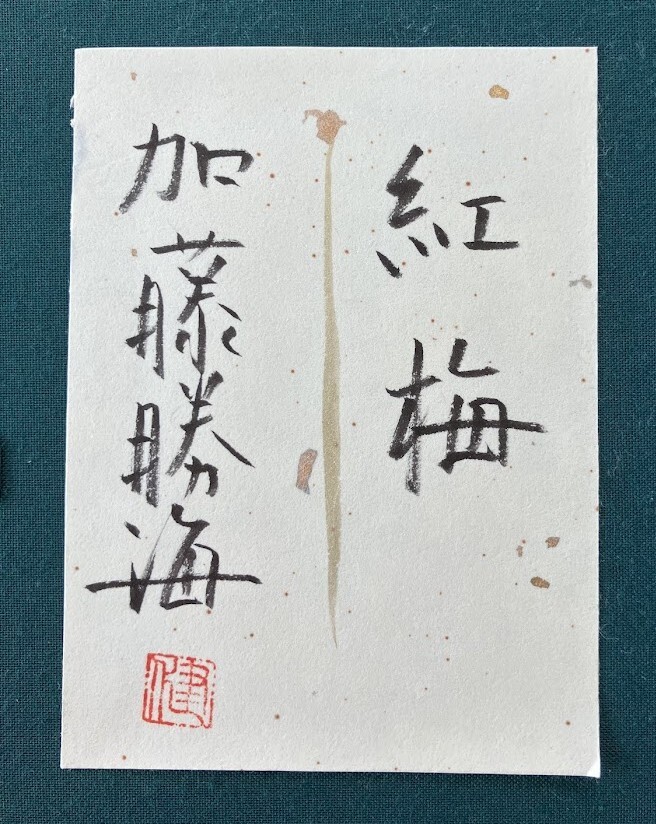 紅梅
加藤勝海
健